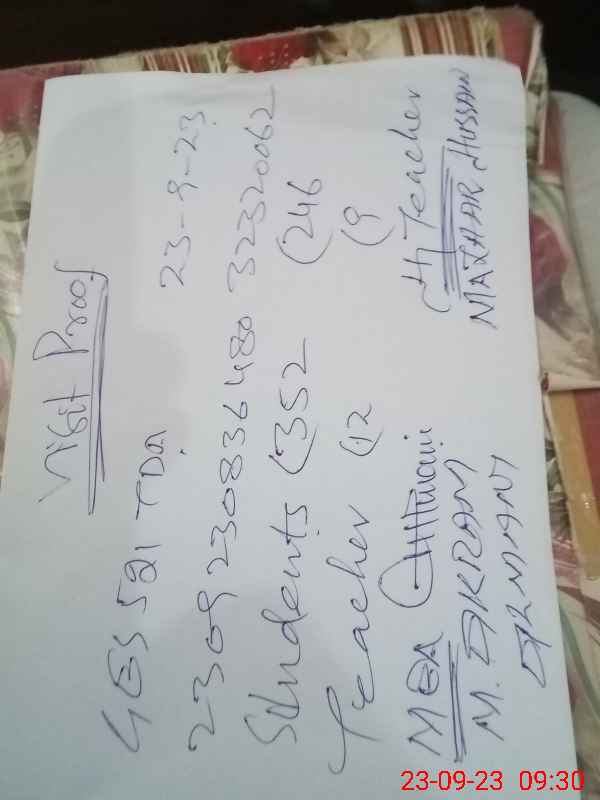 Visit Proof
GES 521 TDA 23-9-23
2309230836480 32320062
Students (352 (246
Teacher (12 (9
MEA (H Teacher
M. IKRAM MAZHAR HUSSAIN
23-09-23 09:30